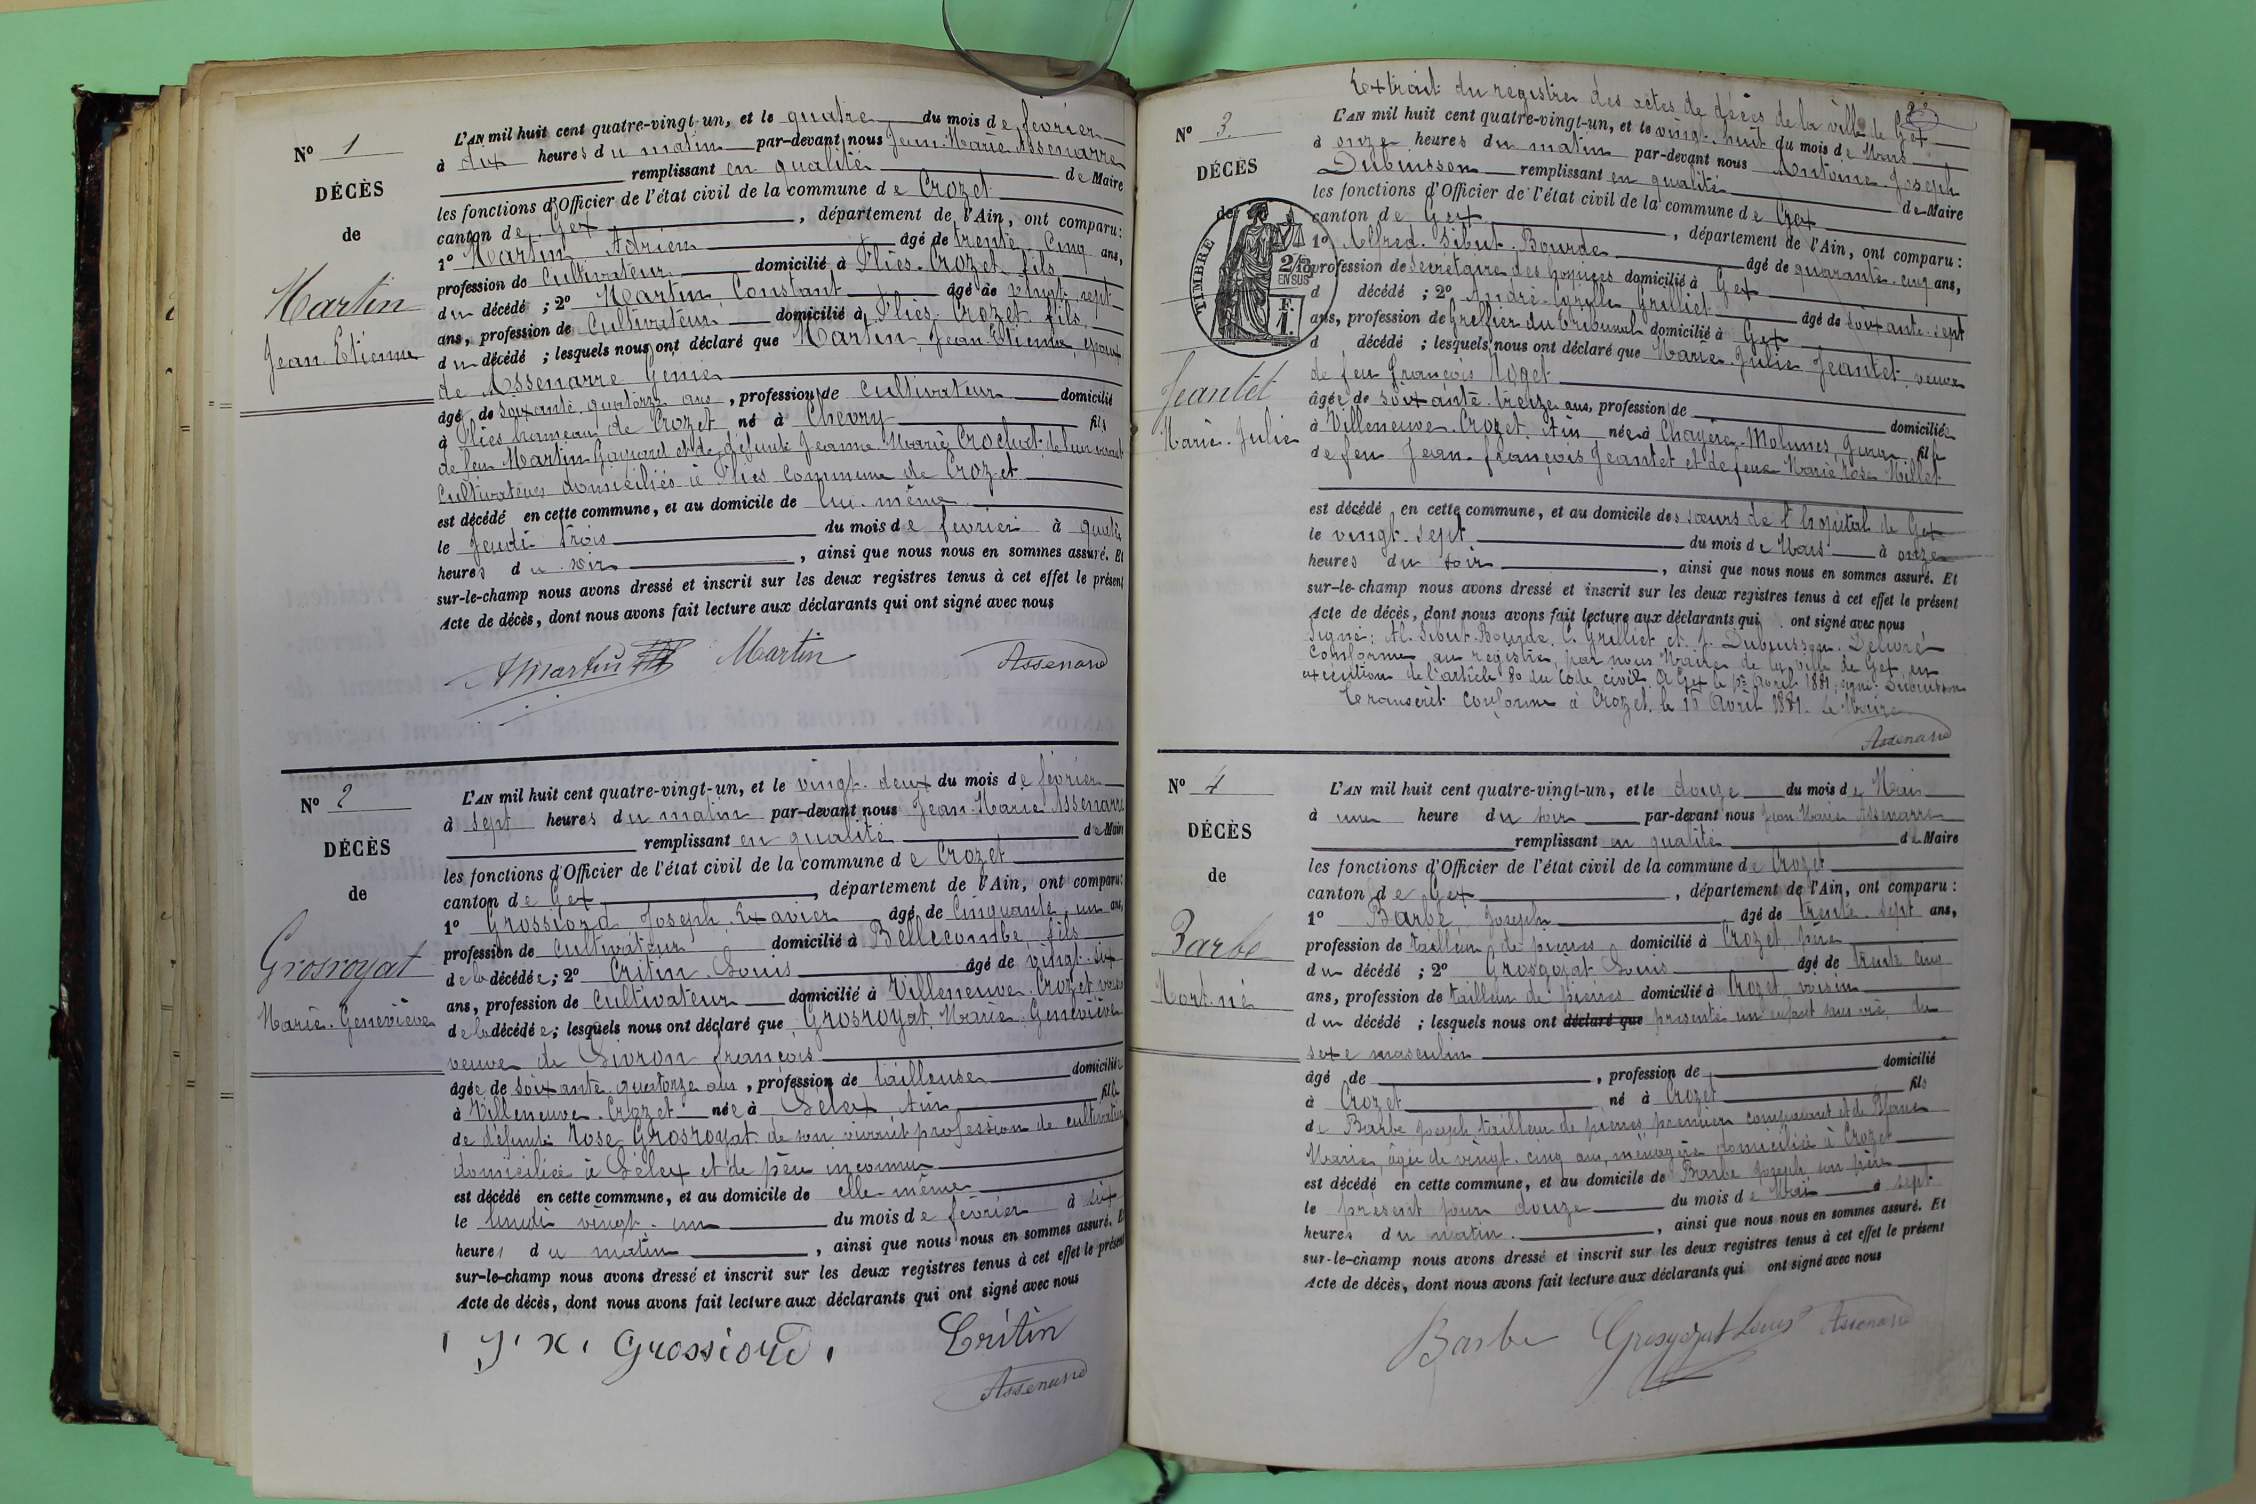 N° 1
DÉCÈS
de
Martin
Jean Etienne
L'AN mil huit cent quatre-vingt-un, et le quatre du mois de février
à dix heures du matin par-devant nous Jean-Marie Assenarre
remplissant en qualité de Maire
les fonctions d'Officier de l'état civil de la commune de Crozet
canton de Gex, département de l'Ain, ont comparu:
1° Martin Adrien âgé de trente-cinq ans,
profession de Cultivateur domicilié à Flies-Crozet fils
du décédé ; 2° Martin Constant âgé de vingt-sept
ans, profession de Cultivateur domicilié à Flies Crozet fils
du décédé ; lesquels nous ont déclaré que Martin, Jean-Etienne, époux
de Assenarre Génie
âgé de soixante-quatorze ans, profession de cultivateur domicilié
à Flies hameau de Crozet né à Chevry fils
de feu Martin et de défunte Jeanne Marie Crochut de leur vivant
cultivateurs domiciliés à Flies Commune de Crozet
est décédé en cette commune, et au domicile de lui-même
le jeudi trois du mois de février à quatre
heures du soir, ainsi que nous nous en sommes assuré. Et
sur-le-champ nous avons dressé et inscrit sur les deux registres tenus à cet effet le présent
Acte de décès, dont nous avons fait lecture aux déclarants qui ont signé avec nous
AMartin Martin Assenard
N° 2
DÉCÈS
de
Grosroyat
Marie-Geneviève
L'AN mil huit cent quatre-vingt-un, et le vingt-deux du mois de février
à sept heures du matin par-devant nous Jean-Marie Assenarre
remplissant en qualité de Maire
les fonctions d'Officier de l'état civil de la commune de Crozet
canton de Gex, département de l'Ain, ont comparu:
1° Grossiord Joseph Exavier âgé de Cinquante-un ans,
profession de Cultivateur domicilié à Bellecombe, fils
de la décédée; 2° Critin Louis âgé de vingt-six
ans, profession de Cultivateur domicilié à Villeneuve-Crozet
de la décédée; lesquels nous ont déclaré que Grosroyat, Marie-Geneviève
veuve de Livron François
âgée de soixante-quatorze ans, profession de tailleuse domiciliée
à Villeneuve-Crozet née à Lelex, Ain fille
de défunte Rose Grosroyat de son vivant profession de cultivatrice
domiciliée à Lélex et de père inconnu
est décédé en cette commune, et au domicile de elle-même
le lundi vingt-un du mois de février à six
heures du matin, ainsi que nous nous en sommes assuré. Et
sur-le-champ nous avons dressé et inscrit sur les deux registres tenus à cet effet le présent
Acte de décès, dont nous avons fait lecture aux déclarants qui ont signé avec nous
J. X. Grossiord Critin
Assenard
Extrait du registre des actes de décès de la ville de Gex
N° 3
DÉCÈS
de
TIMBRE
2/10 EN SUS
F. 1.
Jeantet
Marie-Julie
L'AN mil huit cent quatre-vingt-un, et le vingt-huit du mois de Mars
à onze heures du matin par-devant nous Antoine-Joseph
Dubuisson remplissant en qualité de Maire
les fonctions d'Officier de l'état civil de la commune de Gex
canton de Gex, département de l'Ain, ont comparu:
1° Alfred Sibut-Bourde âgé de quarante-cinq ans,
profession de Secrétaire des hospices domicilié à Gex
d décédé ; 2° André Cyrille Grilliet âgé de soixante-sept
ans, profession de Greffier du tribunal domicilié à Gex
d décédé ; lesquels nous ont déclaré que Marie-Julie Jeantet veuve
de feu François
âgée de soixante-treize ans, profession de domiciliée
à Villeneuve-Crozet, Ain, née à Molunes, Jura, fille
de feu Jean-François Jeantet et de feue Marie Rose Millet
est décédé en cette commune, et au domicile des sœurs de l'hôpital de Gex
le vingt-sept du mois de Mars à onze
heures du soir, ainsi que nous nous en sommes assuré. Et
sur-le-champ nous avons dressé et inscrit sur les deux registres tenus à cet effet le présent
Acte de décès, dont nous avons fait lecture aux déclarants qui ont signé avec nous
Signé: Al. Sibut-Bourde, C. Grilliet et J. Dubuisson. Délivré
conforme au registre, par nous Maire de la ville de Gex, en
exécution de l'article 80 du Code civil. A Gex le 1er Avril 1881, signé: Dubuisson
Transcrit conforme à Crozet, le 15 Avril 1881. Le Maire
Assenard
N° 4
DÉCÈS
de
Barbe
Mort-né
L'AN mil huit cent quatre-vingt-un, et le douze du mois de Mai
à une heure du soir par-devant nous Jean Marie Assenarre
remplissant en qualité de Maire
les fonctions d'Officier de l'état civil de la commune de Crozet
canton de Gex, département de l'Ain, ont comparu:
1° Barbe Joseph âgé de trente-sept ans,
profession de tailleur de pierres domicilié à Crozet père
du décédé ; 2° Grosgojat Louis âgé de trente cinq
ans, profession de tailleur de pierres domicilié à Crozet voisin
du décédé ; lesquels nous ont déclaré que présenté un enfant sans vie, du
sexe masculin
âgé de, profession de domicilié
à Crozet né à Crozet fils
de Barbe Joseph tailleur de pierres premier comparant et de
Marie, âgée de vingt-cinq ans, ménagère domiciliée à Crozet
est décédé en cette commune, et au domicile de Barbe Joseph son père
le présent jour douze du mois de Mai à sept
heures du matin, ainsi que nous nous en sommes assuré. Et
sur-le-champ nous avons dressé et inscrit sur les deux registres tenus à cet effet le présent
Acte de décès, dont nous avons fait lecture aux déclarants qui ont signé avec nous
Barbe Grosgojat Louis Assenard